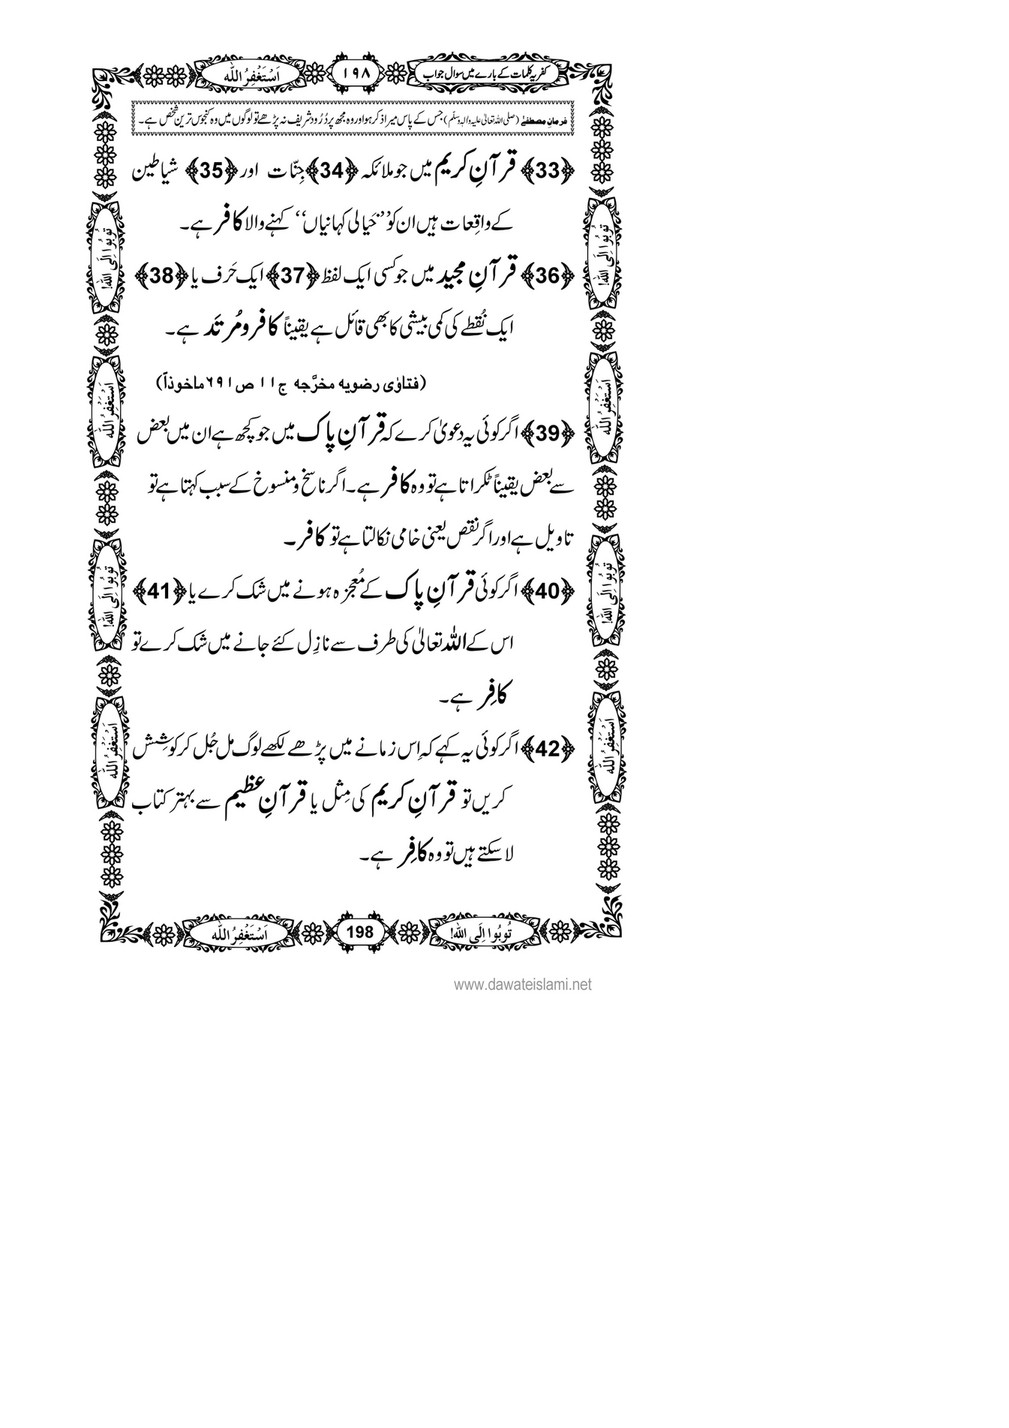 کفریہ کلمات کے بارے میں سوال جواب ۱۹۸ اَسْتَغْفِرُ اللّٰه
فرمانِ مصطفٰے (صلی اللہ تعالیٰ علیہ والہ وسلم) جس کے پاس میرا ذکر ہوا اور وہ مجھ پر دُرُود شریف نہ پڑھے تو لوگوں میں وہ کنجوس ترین شخص ہے۔
﴿33﴾ قرآنِ کریم میں جو ملائکہ ﴿34﴾ جِنّات اور ﴿35﴾ شیاطین
کے واقِعات ہیں ان کو ’’خَیالی کہانیاں‘‘ کہنے والا کافر ہے۔
﴿36﴾ قرآنِ مجید میں جو کسی ایک لفظ ﴿37﴾ ایک حَرف یا ﴿38﴾
ایک نُقطے کی کمی بیشی کا بھی قائل ہے یقیناً کافر و مُرتَد ہے۔
(فتاوٰی رضویہ مخرَّجہ ج۱۱ ص۶۹۱ ماخوذاً)
﴿39﴾ اگر کوئی یہ دعویٰ کرے کہ قرآنِ پاک میں جو کچھ ہے ان میں بعض
سے بعض یقیناً ٹکراتا ہے تو وہ کافر ہے۔ اگر ناسخ و منسوخ کے سبب کہتا ہے تو
تاویل ہے اور اگر نقص یعنی خامی نکالتا ہے تو کافر۔
﴿40﴾ اگر کوئی قرآنِ پاک کے مُعجزہ ہونے میں شک کرے یا ﴿41﴾
اس کے اللہ تعالیٰ کی طرف سے نازِل کئے جانے میں شک کرے تو
کافِر ہے۔
﴿42﴾ اگر کوئی یہ کہے کہ اِس زمانے میں پڑھے لکھے لوگ مل جُل کر کوشِش
کریں تو قرآنِ کریم کی مِثل یا قرآنِ عظیم سے بہتر کتاب
لا سکتے ہیں تو وہ کافِر ہے۔
تُوبُوا اِلَی اللّٰه! 198 اَسْتَغْفِرُ اللّٰه
تُوبُوا اِلَی اللّٰه!
اَسْتَغْفِرُ اللّٰه
تُوبُوا اِلَی اللّٰه!
اَسْتَغْفِرُ اللّٰه
تُوبُوا اِلَی اللّٰه!
اَسْتَغْفِرُ اللّٰه
تُوبُوا اِلَی اللّٰه!
اَسْتَغْفِرُ اللّٰه
www.dawateislami.net